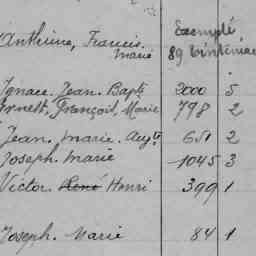 Exempté
Anthime, Francis
Marie 89 Tinténiac
Ignace. Jean. Bapte 2000 5
Ernest, François, Marie 798 2
Jean. Marie. Augte 651 2
Joseph. Marie 1045 3
Victor. René Henri 399 1
Joseph. Marie 84 1